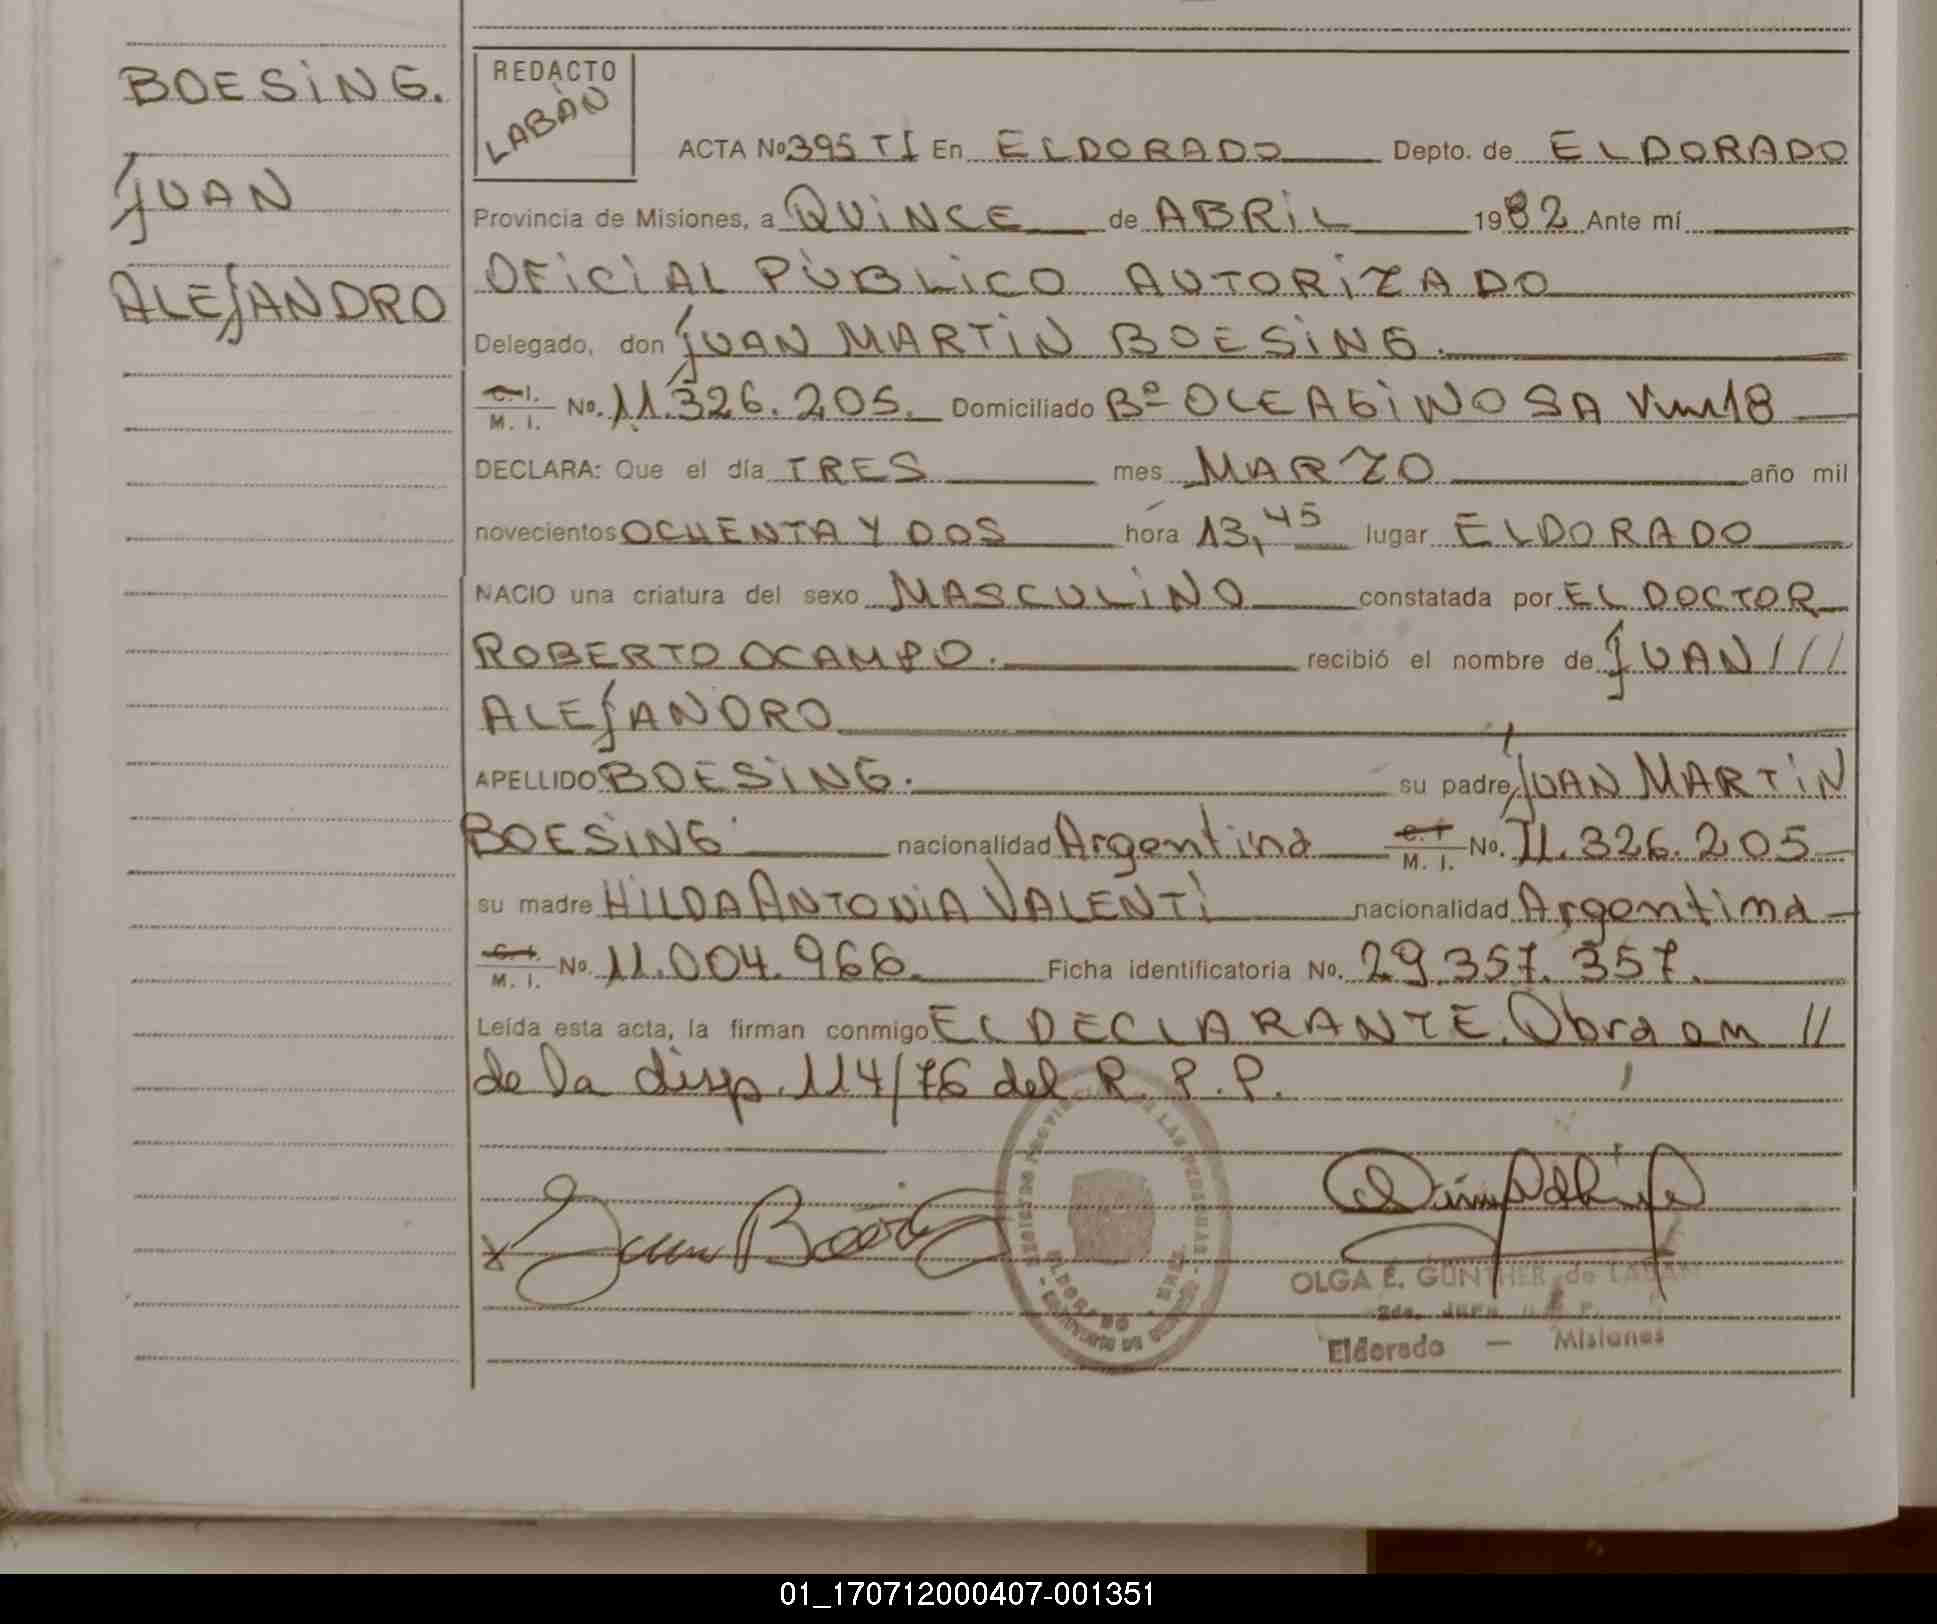 BOESiNG.
JUAN
ALEJANDRO
REDACTO
LABÁN
ACTA No 395 TI En ELDORADO Depto. de ELDORADO
Provincia de Misiones, a QUiNCE de ABRiL 1982 Ante mí
OFiCiAL PÚBLiCO AUTORiZADO
Delegado, don JUAN MARTiN BOESiNG.
C. I. / M. I. No. 11.326.205. Domiciliado Bº OLEAGiNOSA Km 18
DECLARA: Que el día TRES mes MARZO año mil
novecientos OCHENTA Y DOS hora 13,45 lugar ELDORADO
NACIO una criatura del sexo MASCULiNO constatada por EL DOCTOR
ROBERTO OCAMPO. recibió el nombre de JUAN ///
ALEJANDRO
APELLIDO BOESiNG. su padre JUAN MARTiN
BOESiNG nacionalidad Argentina C. I. / M. I. No. 11.326.205
su madre HILDA ANTONiA VALENTi nacionalidad Argentina
C. I. / M. I. No. 11.004.966. Ficha identificatoria No. 29.357.357.
Leída esta acta, la firman conmigo EL DECLARANTE. Obra en //
de la disp. 114/76 del R. P. P.
x Juan Boesing
REGISTRO PROVINCIAL DE LAS PERSONAS
ELDORADO
OLGA E. GUNTHER de LABAN
Eldorado — Misiones
01_170712000407-001351